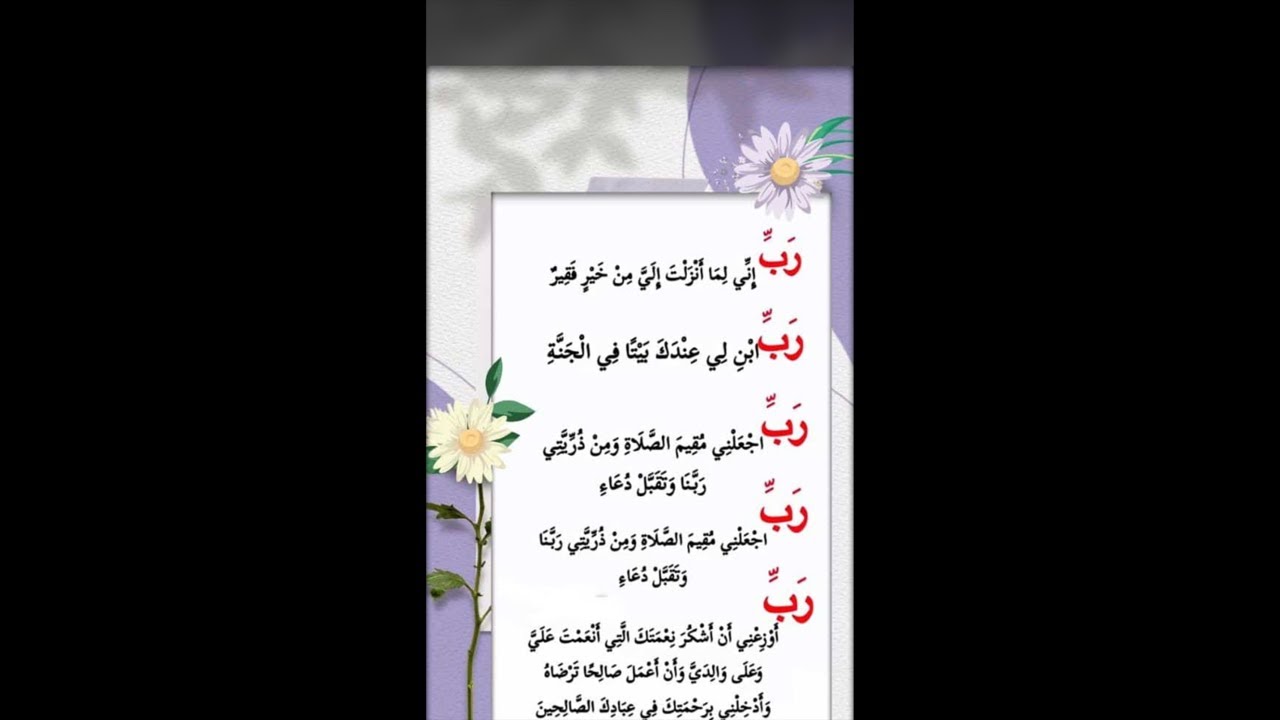 رَبِّ إِنِّي لِمَا أَنْزَلْتَ إِلَيَّ مِنْ خَيْرٍ فَقِيرٌ
رَبِّ ابْنِ لِي عِنْدَكَ بَيْتًا فِي الْجَنَّةِ
رَبِّ اجْعَلْنِي مُقِيمَ الصَّلَاةِ وَمِنْ ذُرِّيَّتِي
رَبَّنَا وَتَقَبَّلْ دُعَاءِ
رَبِّ اجْعَلْنِي مُقِيمَ الصَّلَاةِ وَمِنْ ذُرِّيَّتِي رَبَّنَا
وَتَقَبَّلْ دُعَاءِ
رَبِّ
أَوْزِعْنِي أَنْ أَشْكُرَ نِعْمَتَكَ الَّتِي أَنْعَمْتَ عَلَيَّ
وَعَلَى وَالِدَيَّ وَأَنْ أَعْمَلَ صَالِحًا تَرْضَاهُ
وَأَدْخِلْنِي بِرَحْمَتِكَ فِي عِبَادِكَ الصَّالِحِينَ